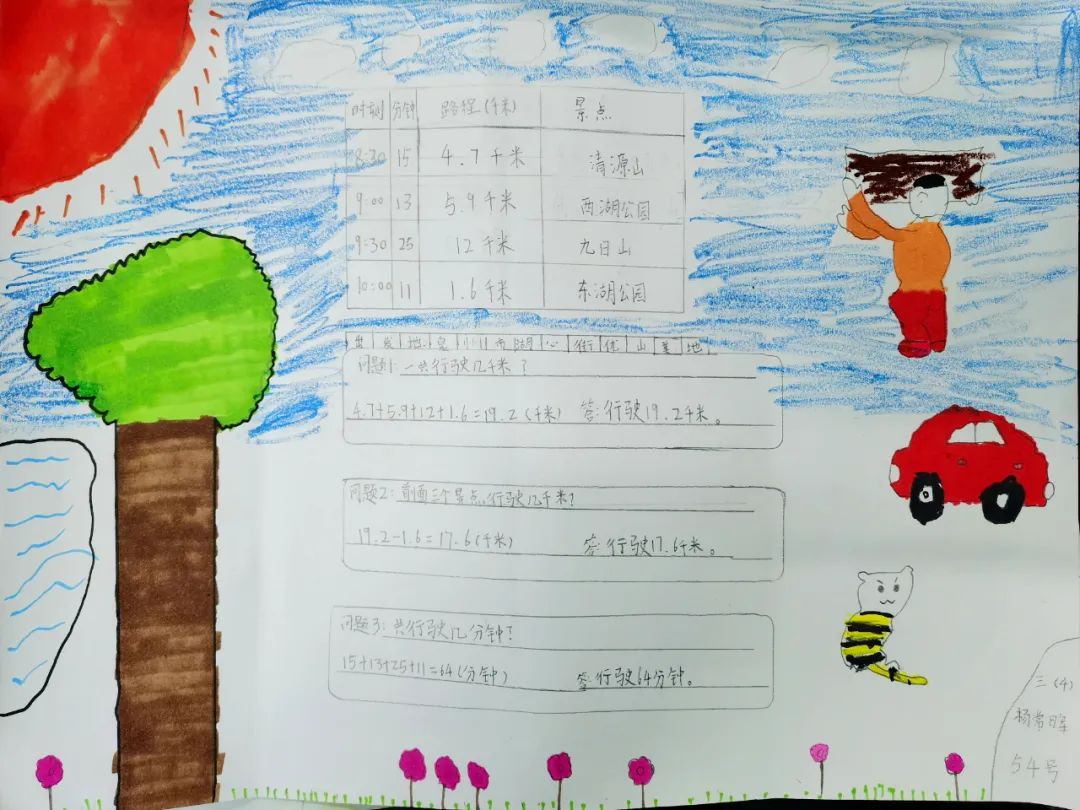 时刻 分钟 路程(千米) 景点
8:30 15 4.7千米 清源山
9:00 13 5.9千米 西湖公园
9:30 25 12千米 九日山
10:00 11 1.6千米 东湖公园
问题1:一共行驶几千米?
4.7+5.9+12+1.6=19.2(千米) 答:行驶19.2千米。
问题2:前面三个景点行驶几千米?
19.2-1.6=17.6(千米) 答:行驶17.6千米。
问题3:共行驶几分钟?
15+13+25+11=64(分钟) 答:行驶64分钟。
三(4)
杨常晖
54号